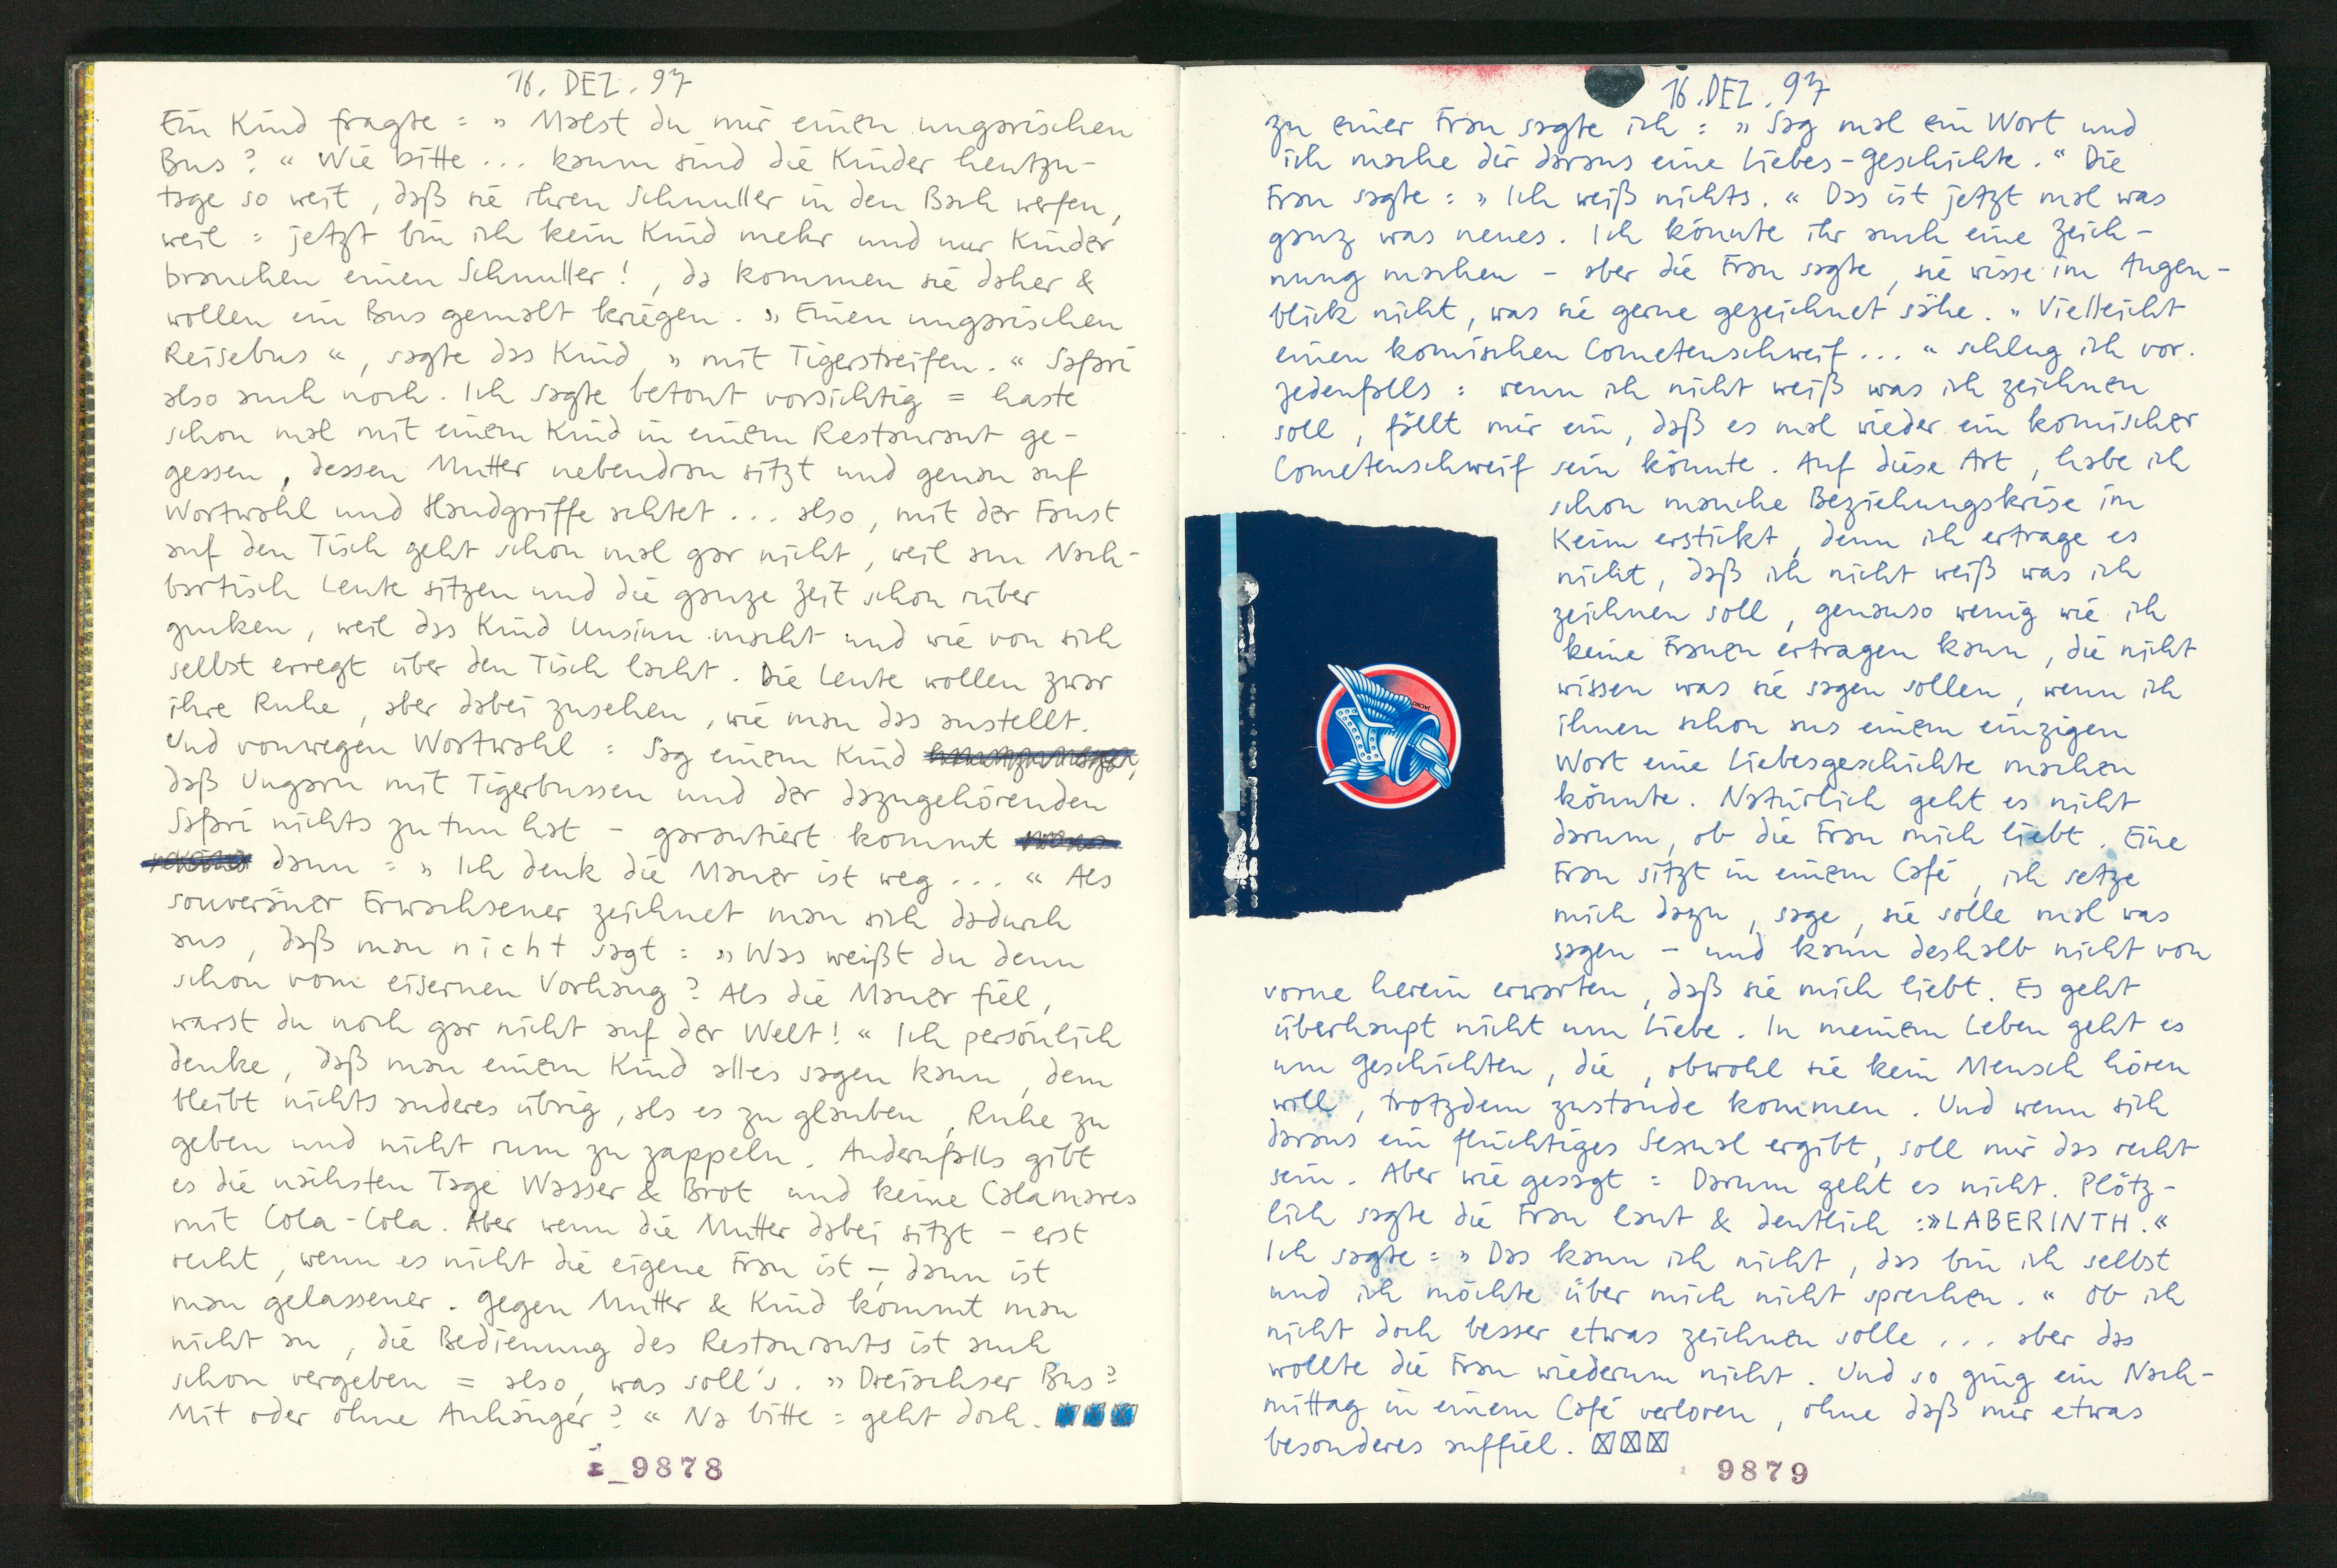 16. DEZ. 97
Ein Kind fragte = » Malst du mir einen ungarischen
Bus? « Wie bitte ... kaum sind die Kinder heutzu-
tage so weit, daß sie ihren Schnuller in den Bach werfen,
weil = jetzt bin ich kein Kind mehr und nur Kinder
brauchen einen Schnuller!, da kommen sie daher &
wollen ein Bus gemalt kriegen. » Einen ungarischen
Reisebus «, sagte das Kind, » mit Tigerstreifen. « Safari
also auch noch. Ich sagte betont vorsichtig = haste
schon mal mit einem Kind in einem Restaurant ge-
gessen, dessen Mutter nebendran sitzt und genau auf
Wortwahl und Handgriffe achtet ... also, mit der Faust
auf den Tisch geht schon mal gar nicht, weil am Nach-
bartisch Leute sitzen und die ganze Zeit schon rüber
gucken, weil das Kind Unsinn macht und wie von sich
selbst erregt über den Tisch lacht. Die Leute wollen zwar
ihre Ruhe, aber dabei zusehen, wie man das anstellt.
Und vonwegen Wortwahl = Sag einem Kind
daß Ungarn mit Tigerbussen und der dazugehörenden
Safari nichts zu tun hat – garantiert kommt
dann = » Ich denk die Mauer ist weg ... « Als
souveräner Erwachsener zeichnet man sich dadurch
aus, daß man nicht sagt = » Was weißt du denn
schon vom eisernen Vorhang? Als die Mauer fiel,
warst du noch gar nicht auf der Welt! « Ich persönlich
denke, daß man einem Kind alles sagen kann, dem
bleibt nichts anderes übrig, als es zu glauben, Ruhe zu
geben und nicht rum zu zappeln. Andernfalls gibt
es die nächsten Tage Wasser & Brot und keine Calamares
mit Cola-Cola. Aber wenn die Mutter dabei sitzt – erst
recht, wenn es nicht die eigene Frau ist –, dann ist
man gelassener. Gegen Mutter & Kind kommt man
nicht an, die Bedienung des Restaurants ist auch
schon vergeben = also, was soll's. » Dreiachser Bus?
Mit oder ohne Anhänger? « Na bitte = geht doch.
9878
16. DEZ. 97
zu einer Frau sagte ich = » Sag mal ein Wort und
ich mache dir daraus eine Liebes-Geschichte. « Die
Frau sagte = » Ich weiß nichts. « Das ist jetzt mal was
ganz was neues. Ich könnte ihr auch eine Zeich-
nung machen – aber die Frau sagte, sie wisse im Augen-
blick nicht, was sie gerne gezeichnet sähe. » Vielleicht
einen komischen Cometenschweif ... « schlug ich vor.
Jedenfalls = wenn ich nicht weiß was ich zeichnen
soll, fällt mir ein, daß es mal wieder ein komischer
Cometenschweif sein könnte. Auf diese Art, habe ich
schon manche Beziehungskrise im
Keim erstickt, denn ich ertrage es
nicht, daß ich nicht weiß was ich
zeichnen soll, genauso wenig wie ich
keine Frauen ertragen kann, die nicht
wissen was sie sagen sollen, wenn ich
ihnen schon aus einem einzigen
Wort eine Liebesgeschichte machen
könnte. Natürlich geht es nicht
darum, ob die Frau mich liebt. Eine
Frau sitzt in einem Café, ich setze
mich dazu, sage, sie solle mal was
sagen – und kann deshalb nicht von
vorne herein erwarten, daß sie mich liebt. Es geht
überhaupt nicht um Liebe. In meinem Leben geht es
um Geschichten, die, obwohl sie kein Mensch hören
will, trotzdem zustande kommen. Und wenn sich
daraus ein flüchtiges Sexual ergibt, soll mir das recht
sein. Aber wie gesagt = Darum geht es nicht. Plötz-
lich sagte die Frau laut & deutlich =»LABERINTH.«
Ich sagte = » Das kann ich nicht, das bin ich selbst
und ich möchte über mich nicht sprechen. « Ob ich
nicht doch besser etwas zeichnen solle ... aber das
wollte die Frau wiederum nicht. Und so ging ein Nach-
mittag in einem Café verloren, ohne daß mir etwas
besonderes auffiel.
9879
JACNO